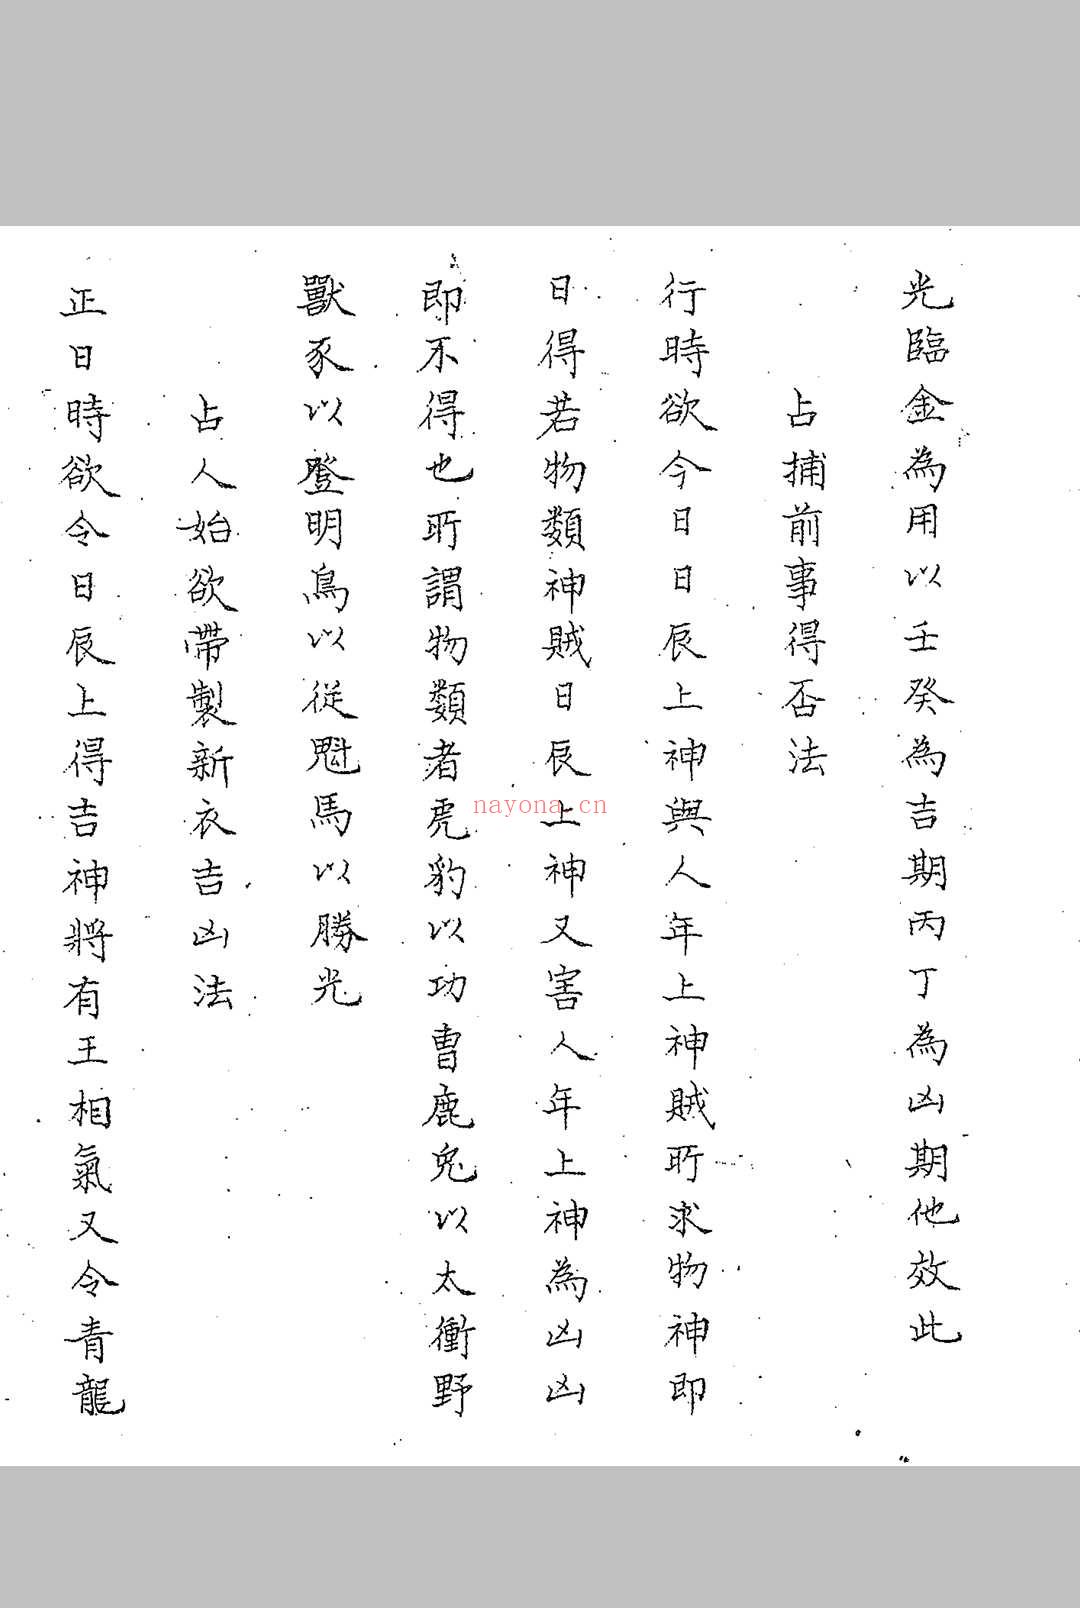 光臨金為用以壬癸為吉期丙丁為凶期他效此
占捕前事得否法
行時欲今日日辰上神與人年上神賊所求物神即
日得若物類神賊日辰上神又害人年上神為凶凶
即不得也所謂物類者虎豹以功曹鹿兔以太衝野
獸豕以登明鳥以從魁馬以勝光
占人始欲帶製新衣吉凶法
正日時欲令日辰上得吉神將有王相氣又令青龍
nayona.cn